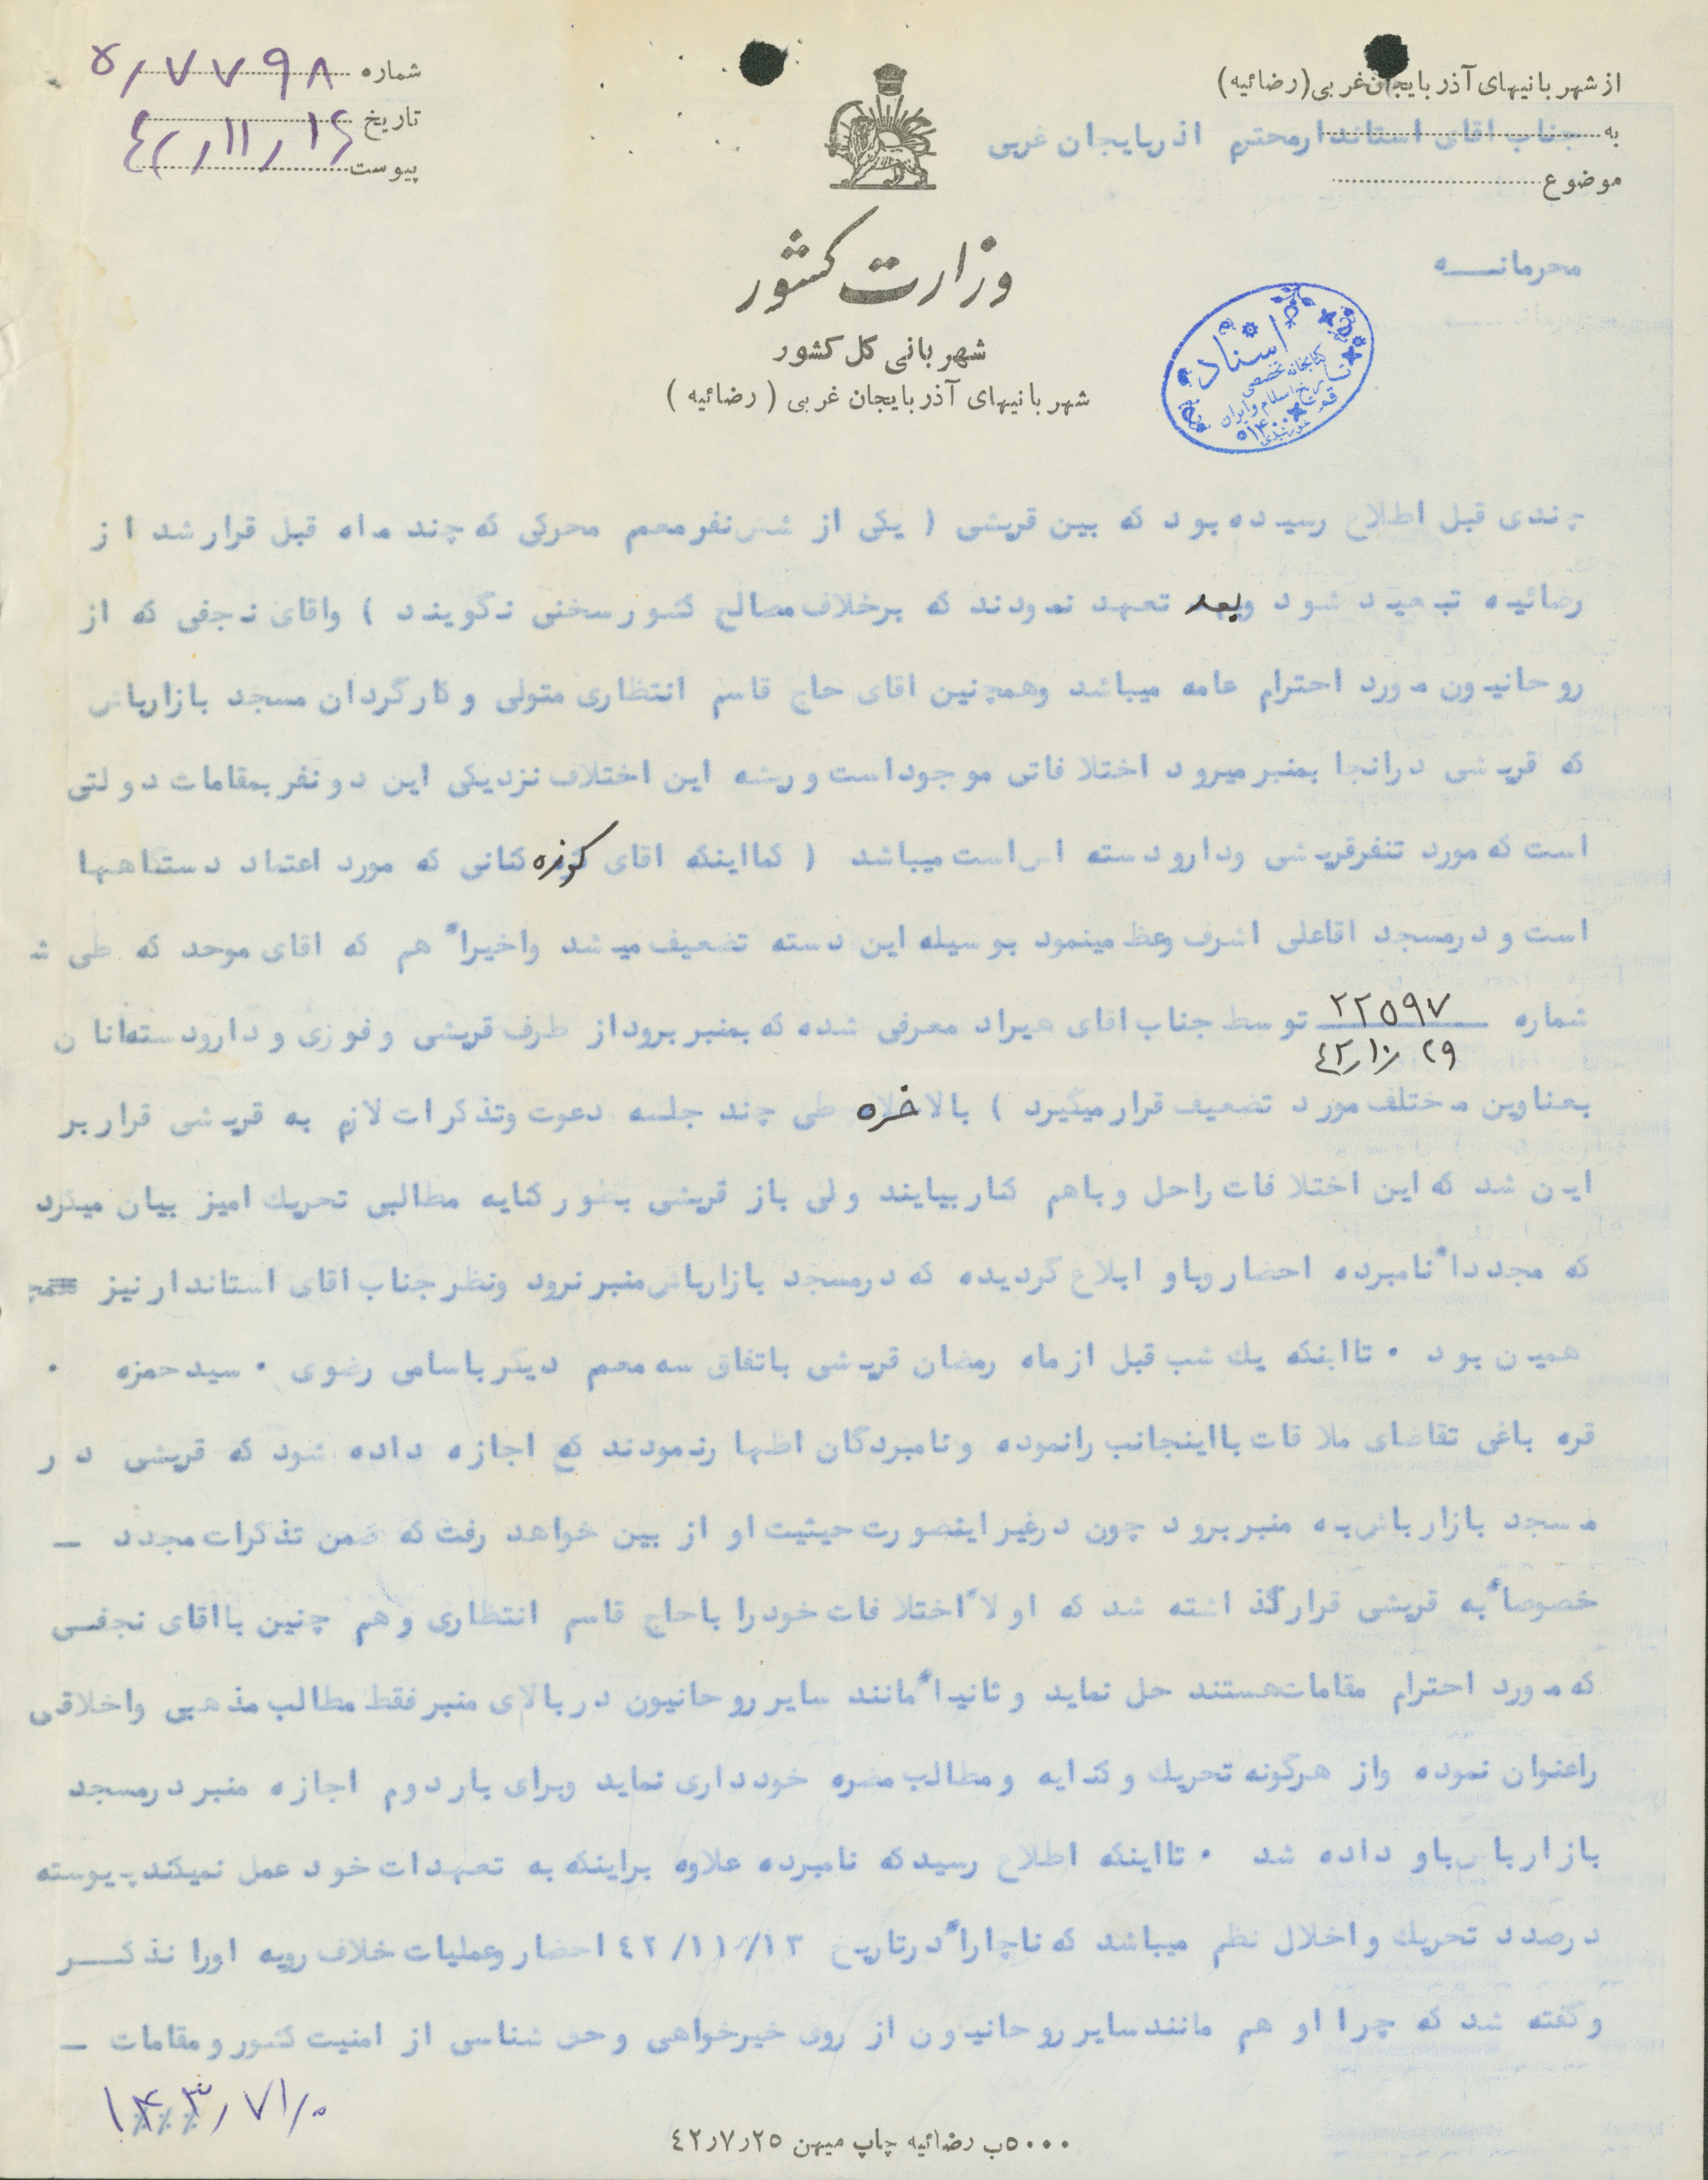 از شهربانیهای آذربایجان غربی (رضائیه)
به جناب اقای استاندار محترم اذربایجان غربی
موضوع
شماره ۵٫۷۷۹۸
تاریخ ۴۲٫۱۱٫۱۶
پیوست
محرمانـــه
وزارت کشور
شهربانی کل کشور
شهربانیهای آذربایجان غربی ( رضائیه )
اسناد
کتابخانه تخصصی
تاریخ اسلام و ایران
قم
چندی قبل اطلاع رسیده بود که بین قریشی ( یکی از شش نفر معمم محرکی که چند ماه قبل قرار شد از
رضائیه تبعید شود وبعد تعهد نمودند که برخلاف مصالح کشور سخنی نگویند ) واقای نجفی که از
روحانیون مورد احترام عامه میباشد وهمچنین اقای حاج قاسم انتظاری متولی و کارگردان مسجد بازارباش
که قریشی درانجا بمنبر میرود اختلافاتی موجود است و ریشه این اختلاف نزدیکی این دو نفر بمقامات دولتی
است که مورد تنفر قریشی ودارو دسته اش است میباشد ( کمااینکه اقای کوزه کنانی که مورد اعتماد دستگاهها
است و درمسجد اقاعلی اشرف وعظ مینمود بوسیله این دسته تضعیف میشد واخیراً هم که اقای موحد که طی ش
شماره ۲۲۵۹۷ توسط جناب اقای هیراد معرفی شده که بمنبر برود از طرف قریشی و فوزی و دارودسته انان
۴۲٫۱۰٫۲۹
بعناوین مختلف مورد تضعیف قرار میگیرد ) بالاخره طی چند جلسه دعوت وتذکرات لازم به قریشی قرار بر
این شد که این اختلافات راحل و باهم کنار بیایند ولی باز قریشی بطور کنایه مطالبی تحریك امیز بیان میکرد
که مجدداً نامبرده احضار وباو ابلاغ گردیده که درمسجد بازارباش منبر نرود ونظر جناب اقای استاندار نیز
همین بود ۰ تااینکه یك شب قبل از ماه رمضان قریشی باتفاق سه معمم دیگر باسامی رضوی ۰ سید حمزه ۰
قره باغی تقاضای ملاقات بااینجانب رانموده و نامبردگان اظهار نمودند که اجازه داده شود که قریشی در
مسجد بازارباش به منبر برود چون درغیر اینصورت حیثیت او از بین خواهد رفت که ضمن تذکرات مجدد ــ
خصوصاً به قریشی قرار گذاشته شد که اولاً اختلافات خودرا باحاج قاسم انتظاری وهم چنین بااقای نجفــی
که مورد احترام مقامات هستند حل نماید و ثانیاً مانند سایر روحانیون در بالای منبر فقط مطالب مذهبی واخلاقی
راعنوان نموده واز هرگونه تحریك و کنایه و مطالب مضره خودداری نماید وبرای بار دوم اجازه منبر درمسجد
بازارباش باو داده شد ۰ تااینکه اطلاع رسید که نامبرده علاوه براینکه به تعهدات خود عمل نمیکند پیوسته
درصدد تحریك و اخلال نظم میباشد که ناچاراً درتاریخ ۴۲/۱۱/۱۳ احضار وعملیات خلاف رویه اورا تذکــر
وگفته شد که چرا او هم مانند سایر روحانیون از روی خیرخواهی و حق شناسی از امنیت کشور و مقامات ــ
۵۰۰۰ب رضائیه چاپ میهن ۴۲٫۷٫۲۵